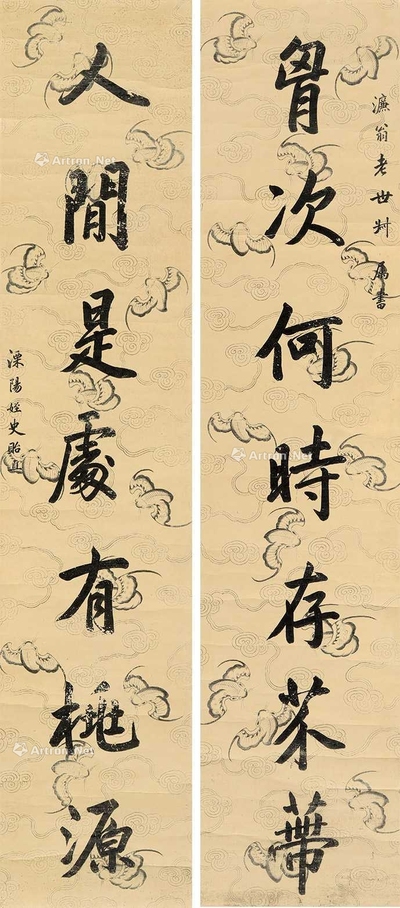 濂翁老世尗 属書
胷次何時存芥蔕
人間是處有桃源
溧陽姪史貽直
Artron.Net
Artron.Net
Artron.Net
Artron.Net